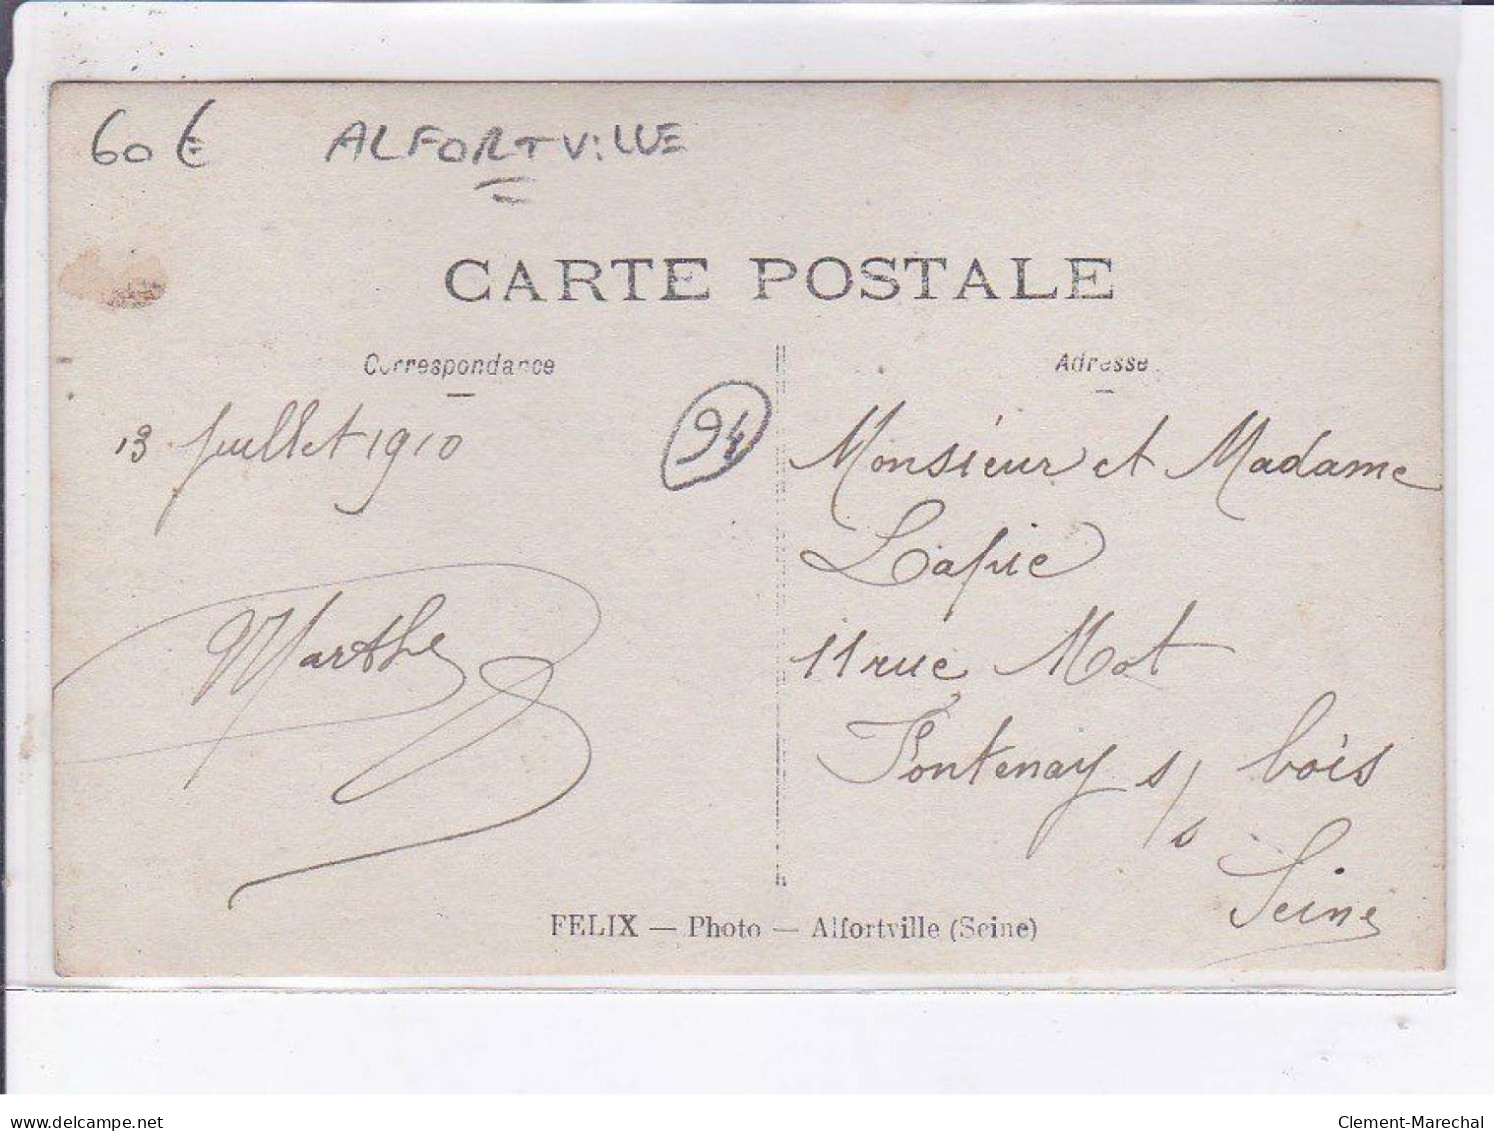 60€ ALFORTViLLE
CARTE POSTALE
Correspondance
13 Juillet 1910
94
Marthe
Adresse
Monsieur et Madame
Lapie
11 rue Mot
Fontenay s/s bois
Seine
FELIX — Photo — Alfortville (Seine)
delcampe.net
Clement-Marechal